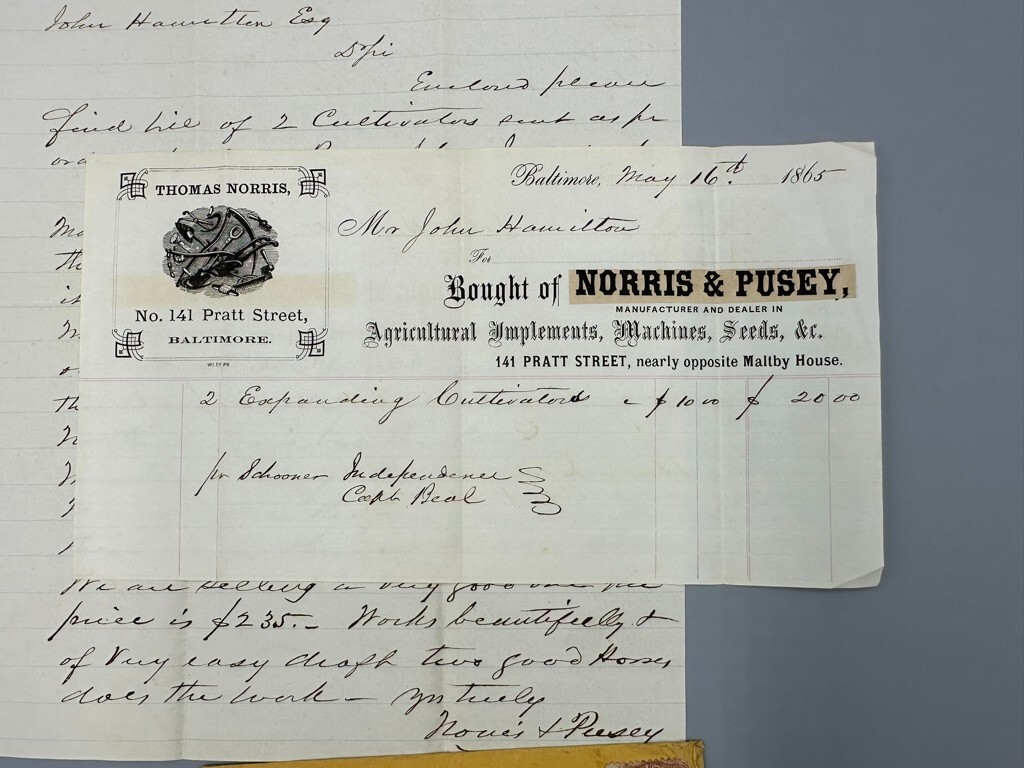 John Hamilton Esq
D Sir
Enclosed please
find bill of 2 Cultivators sent as pr
THOMAS NORRIS,
No. 141 Pratt Street,
BALTIMORE.
Baltimore, May 16th. 1865
Mr John Hamilton
For
Bought of NORRIS & PUSEY,
MANUFACTURER AND DEALER IN
Agricultural Implements, Machines, Seeds, &c.
141 PRATT STREET, nearly opposite Maltby House.
2 Expanding Cultivators $ 10 00 $ 20 00
pr Schooner Independence
Capt. Beal
We are selling a very good one
price is $235.— Works beautifully &
of very easy draft two good Horses
does the work — yrs truly
Norris & Pusey